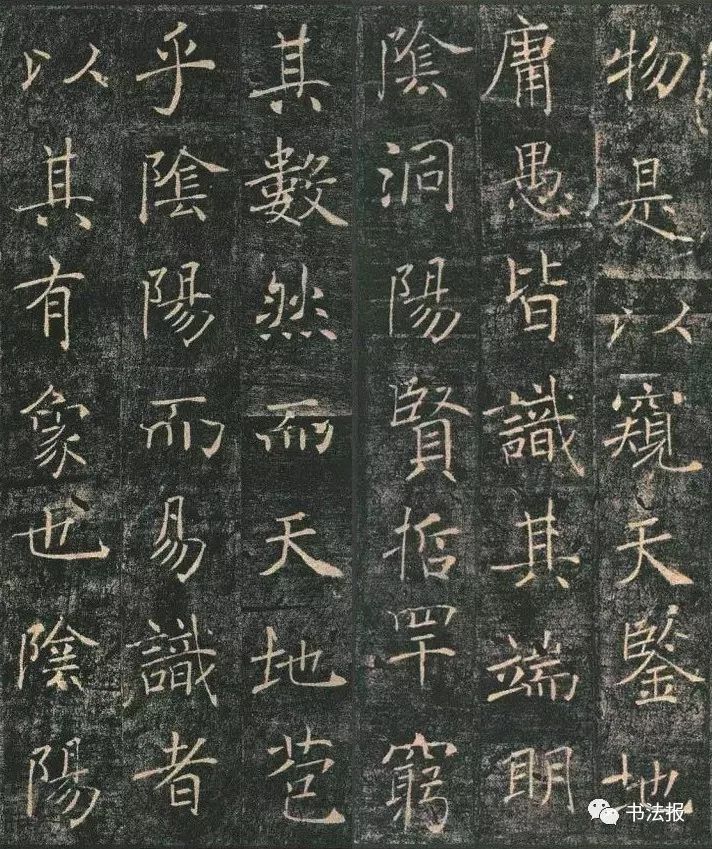 物是以窺天鑒地
庸愚皆識其端明
陰洞陽賢哲罕窮
其數然而天地苞
乎陰陽而易識者
以其有象也陰陽
书法报